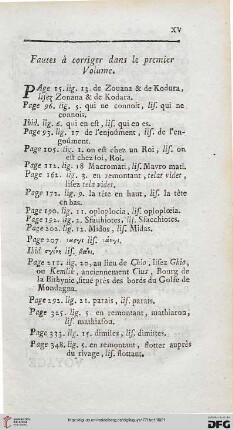 XV
Fautes à corriger dans le premier
Volume.
PAge 15. lig. 13. de Zouana & de Kodura,
lisez Zonana & de Kodara.
Page 96. lig. 5. qui ne connoit, lis. qui ne
connois.
Ibid. lig. 6. qui en est, lis. qui en es.
Page 93. lig. 17 de l'enjoûment, lis. de l'en-
goûment.
Page 105. lig. 1. on est chez un Roi, lis. on
est chez loi, Roi.
Page 112. lig. 18 Macromati, lis. Mavro mati.
Page 162. lig. 3. en remontant, telaz vider,
lisez tela vider.
Page 171. lig. 9. la tête en haut, lis. la tête
en bas.
Page 190. lig. 11. oploplocia, lis. oplopœia.
Page 192. lig. 2.
Page 202. lig. 12. Midos, lis. Midas.
Page 207
Ibid.
Page 211. lig. 20, au lieu de Chio, lisez Ghio,
ou Kemlik, anciennement Cius, Bourg de
la Bithynie, situé près des bords du Golfe de
Mondagna.
Page 292. lig. 21. parais, lis. parait.
Page 325. lig. 5. en remontant, mathiarou,
lis. mathiasou.
Page 333. lig. 15. dimiles, lis. dimites.
Page 348. lig. 5. en remontant, flotter auprès
du rivage, lis. flottant.
DFG